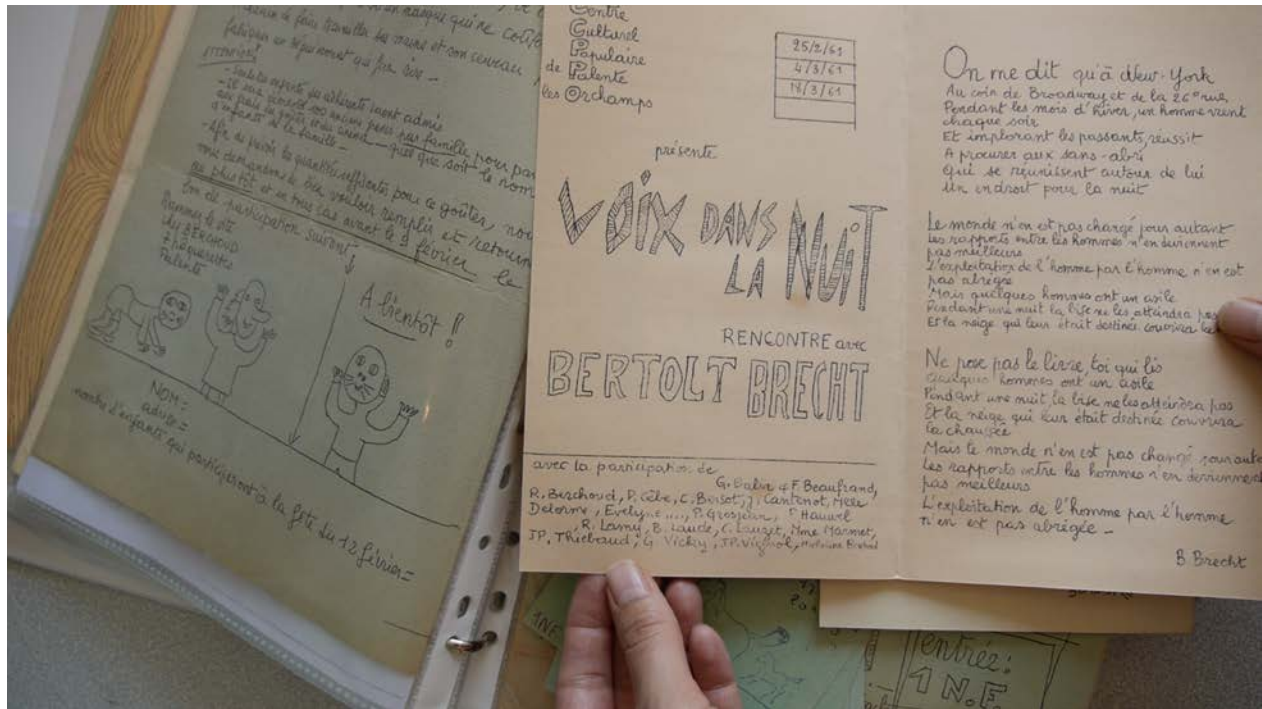 de faire travailler ses mains et son cerveau
fabriquer un déguisement qui fera rire -
- Seuls les enfants des adhérents seront admis
- Il sera demandé 100 anciens francs par famille pour
quel que soit le nom
d'enfants de la famille -
- Afin de prévoir les quantités suffisantes pour ce goûter, nou
vous demandons de bien vouloir remplir et retourn
au plus tôt et en tous cas avant le 9 février le
bon de participation suivant
A bientôt !!
Palente
NOM =
adresse =
nombre d'enfants qui participeront à la fête du 12 février =
Centre
Culturel
Populaire
de Palente
les Orchamps
25/2/61
4/3/61
18/3/61
présente
VOIX DANS
LA NUIT
RENCONTRE avec
BERTOLT BRECHT
avec la participation de
F. Beaufrand,
R. Berchoud, P. Cèbe, C. Borsot, J. Cantenot, Melle
Delorme, P. Grosjean, Hauwel
R. Lamy, B. Laude, C. Lauzet, Mme Marmet,
JP. Thiebaud, G. Vichy, JP. Vignol,
On me dit qu'à New-York
Au coin de Broadway et de la 26e rue,
Pendant les mois d'hiver, un homme vient
chaque soir
Et implorant les passants, réussit
A procurer aux sans-abri
qui se réunissent autour de lui
Un endroit pour la nuit
Le monde n'en est pas changé pour autant
Les rapports entre les hommes n'en deviennent
pas meilleurs
L'exploitation de l'homme par l'homme n'en est
pas abrégée
Mais quelques hommes ont un asile
Pendant une nuit la bise ne les atteindra pas
Et la neige qui leur était destinée couvrira
Ne pose pas le livre, toi qui lis
Quelques hommes ont un asile
Pendant une nuit, la bise ne les atteindra pas
Et la neige qui leur était destinée couvrira
la chaussée
Mais le monde n'en est pas changé pour auta
Les rapports entre les hommes n'en deviennent
pas meilleurs
L'exploitation de l'homme par l'homme
n'en est pas abrégée -
B. Brecht
1 N.F.
entrée:
1 N.F.